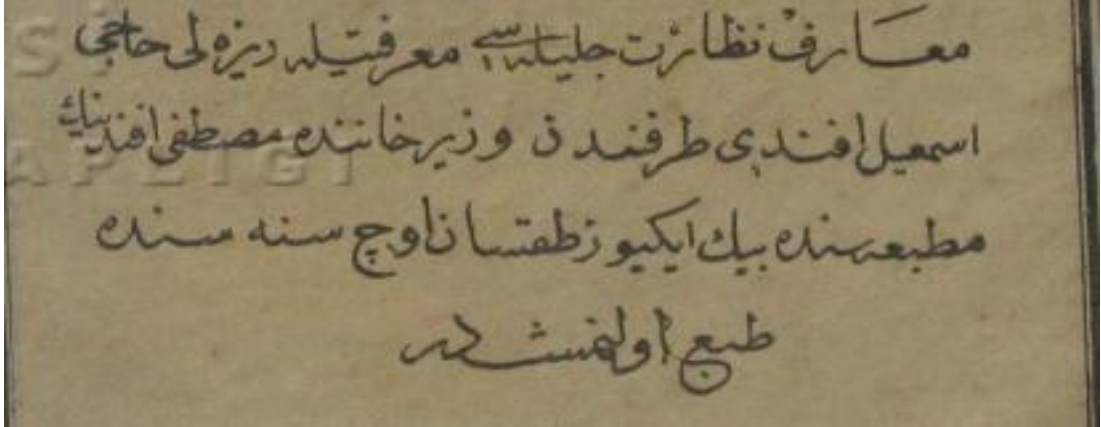 معارف نظارت جلیله‌سی معرفتیله ریزه لی حاجی
اسمعیل افندی طرفندن وزیرخاننده مصطفی افندینك
مطبعه‌سنده بیك ایکیوز طقسان اوچ سنه سنده
طبع اولنمشدر